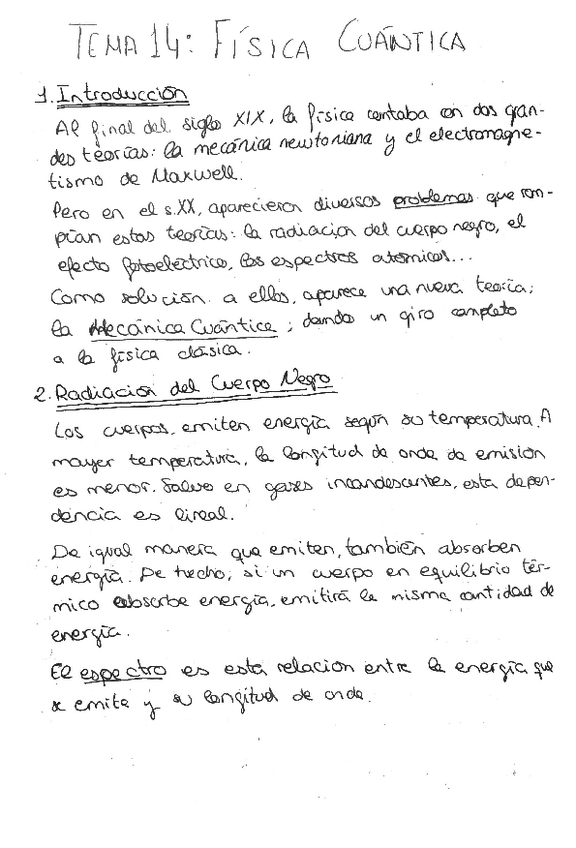 TEMA 14: FÍSICA CUÁNTICA
1. Introducción
Al final del siglo XIX, la física contaba con dos gran-
des teorías: la mecánica newtoniana y el electromagne-
tismo de Maxwell.
Pero en el s.XX, aparecieron diversos problemas que rom-
pían estas teorías: la radiación del cuerpo negro, el
efecto fotoeléctrico, los espectros atómicos...
Como solución a ellos, aparece una nueva teoría;
la Mecánica Cuántica; dando un giro completo
a la física clásica.
2. Radiación del Cuerpo Negro
Los cuerpos, emiten energía según su temperatura. A
mayor temperatura, la longitud de onda de emisión
es menor. Salvo en gases incandescentes, esta depen-
dencia es lineal.
De igual manera que emiten, también absorben
energía. De hecho, si un cuerpo en equilibrio tér-
mico absorbe energía, emitirá la misma cantidad de
energía.
El espectro es esta relación entre la energía que
se emite y su longitud de onda.